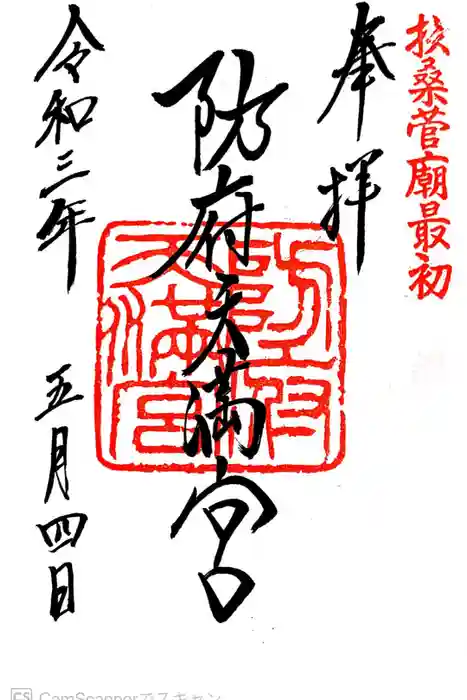 扶桑菅廟最初
奉拝
防府天満宮
令和三年 五月四日
CamScannerでスキャン